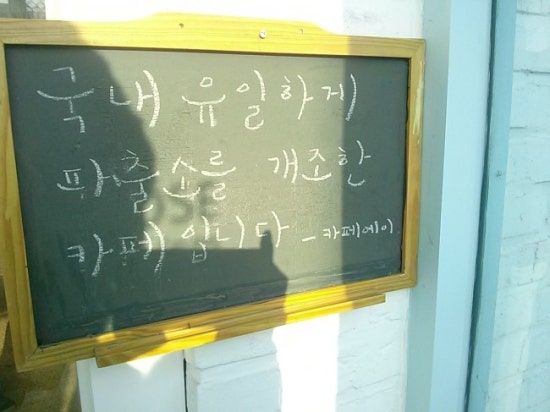 국내 유일하게
파출소를 개조한
카페입니다 - 카페에이